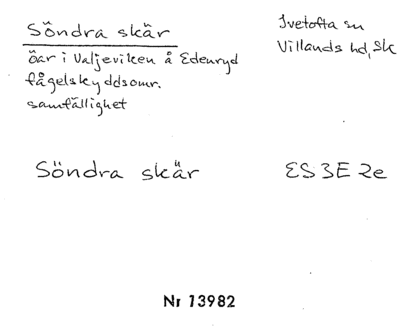 Söndra skär
öar i Valjeviken å Edenryd
fågelskyddsomr.
samfällighet
Ivetofta sn
Villands hd, Sk
Söndra skär
ES 3E 2e
Nr 13982